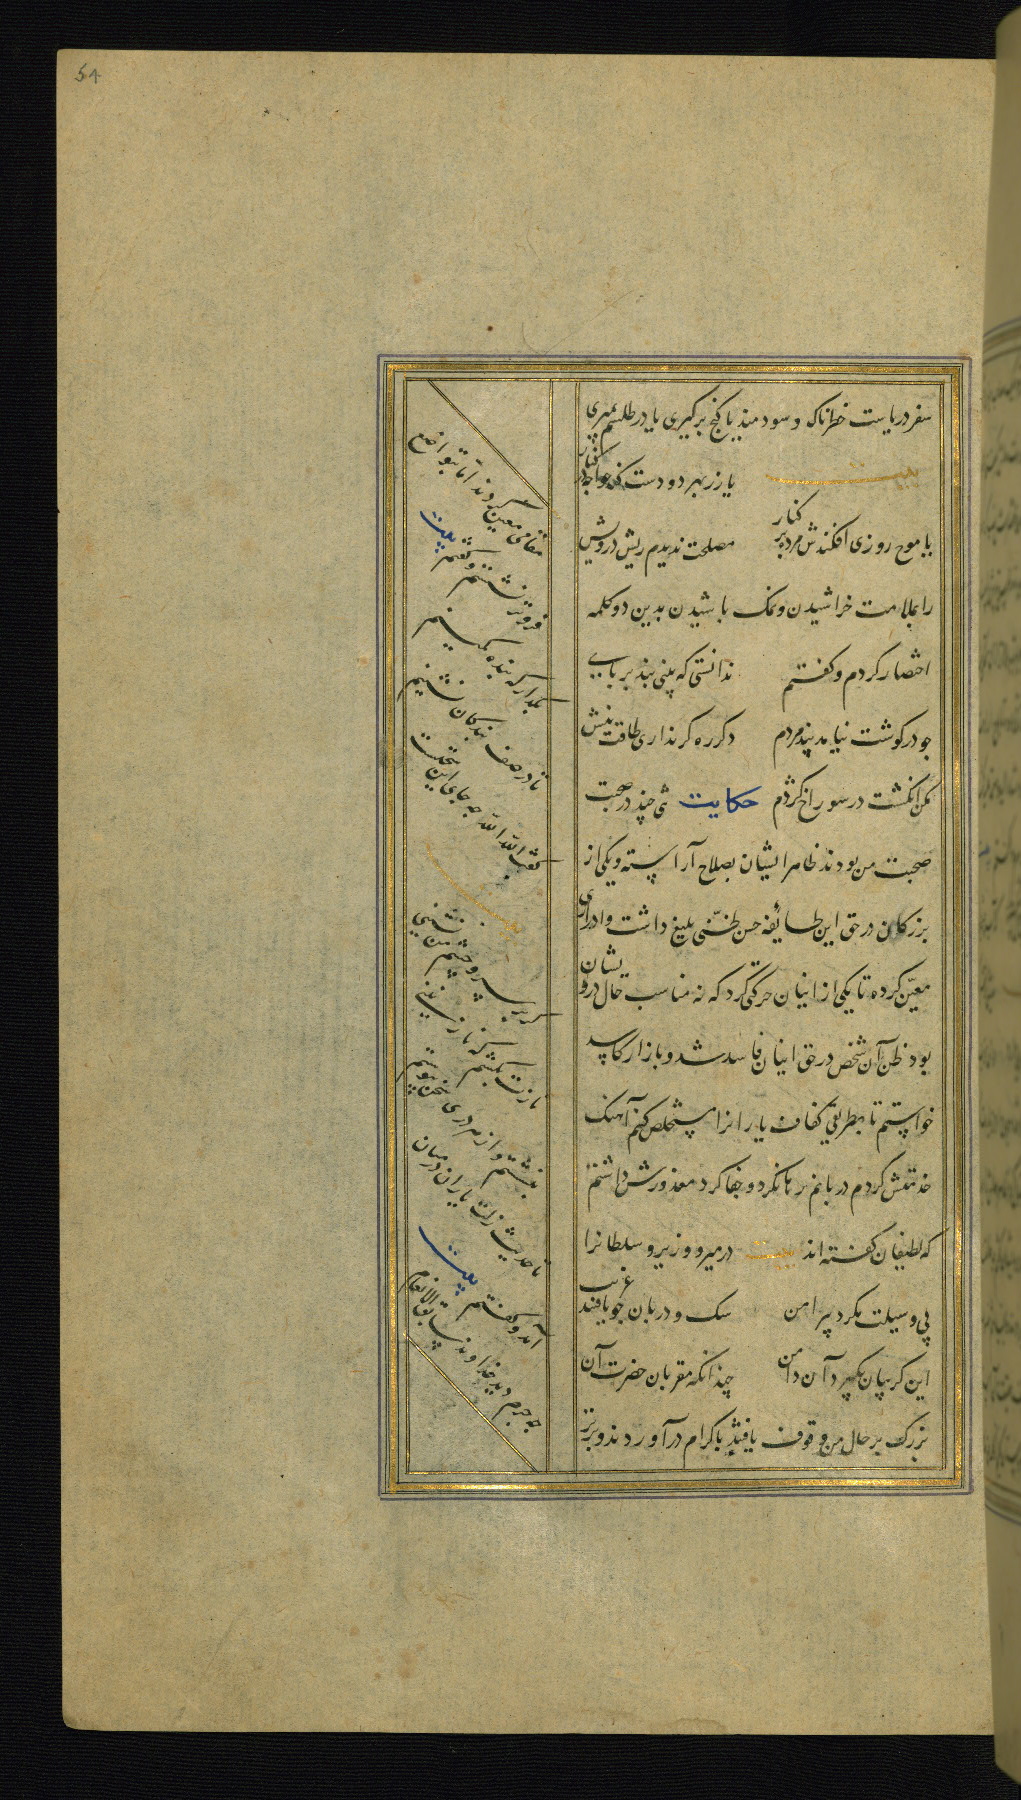 54
سفر دریاست خطرناک و سودمند یا گنج برگیری یا در طلسم بمیری
یا زر بهر دو دست کند خواجه در کنار
یا موج روزی افکندش مرده بر کنار مصلحت ندیدم ریش درویش
را بملامت خراشیدن و نمک پاشیدن بدین دو کلمه
اختصار کردم و گفتم ندانستی که بینی بند بر پای
چو در گوشت نیامد پند مردم دگر ره گر نداری طاقت نیش
مکن انگشت در سوراخ کژدم حکایت تنی چند در صحبت
صحبت من بودند ظاهر ایشان بصلاح آراسته و یکی از
بزرگان در حق این طایفه حسن ظنی بلیغ داشت و ادراری
معین کرده تا یکی از اینان حرکتی کرد که نه مناسب حال درویشان
بود ظن آن شخص در حق اینان فاسد شد و بازار کاسد
خواستم تا بطریقی کفاف یارانرا مستخلص کنم آهنگ
خدمتش کردم دربانم رها نکرد و جفا کرد معذورش داشتم
که لطیفان گفته‌اند بیت در میر و وزیر و سلطانرا
بی وسیلت مگرد پیرامن سگ و دربان چو یافتند غریب
این گریبان بگیرد آن دامن چندانکه مقربان حضرت آن
بزرگ بر حال من وقوف یافتند باکرام درآوردند و برتر
مقامی معین کردند اما بتواضع
فروتر نشستم و گفتم بیت
بگذار که بنده کمینم
تا در صف بندگان نشینم
گفت الله الله چه جای این سخنست
گر بر سر و چشم من نشینی
نازت بکشم که نازنینی
بنشستم و از هر دری سخن پیوستم
تا حدیث زلت یاران در میان
آمد و گفتم بیت
چه جرم دید خداوند سابق الانعام